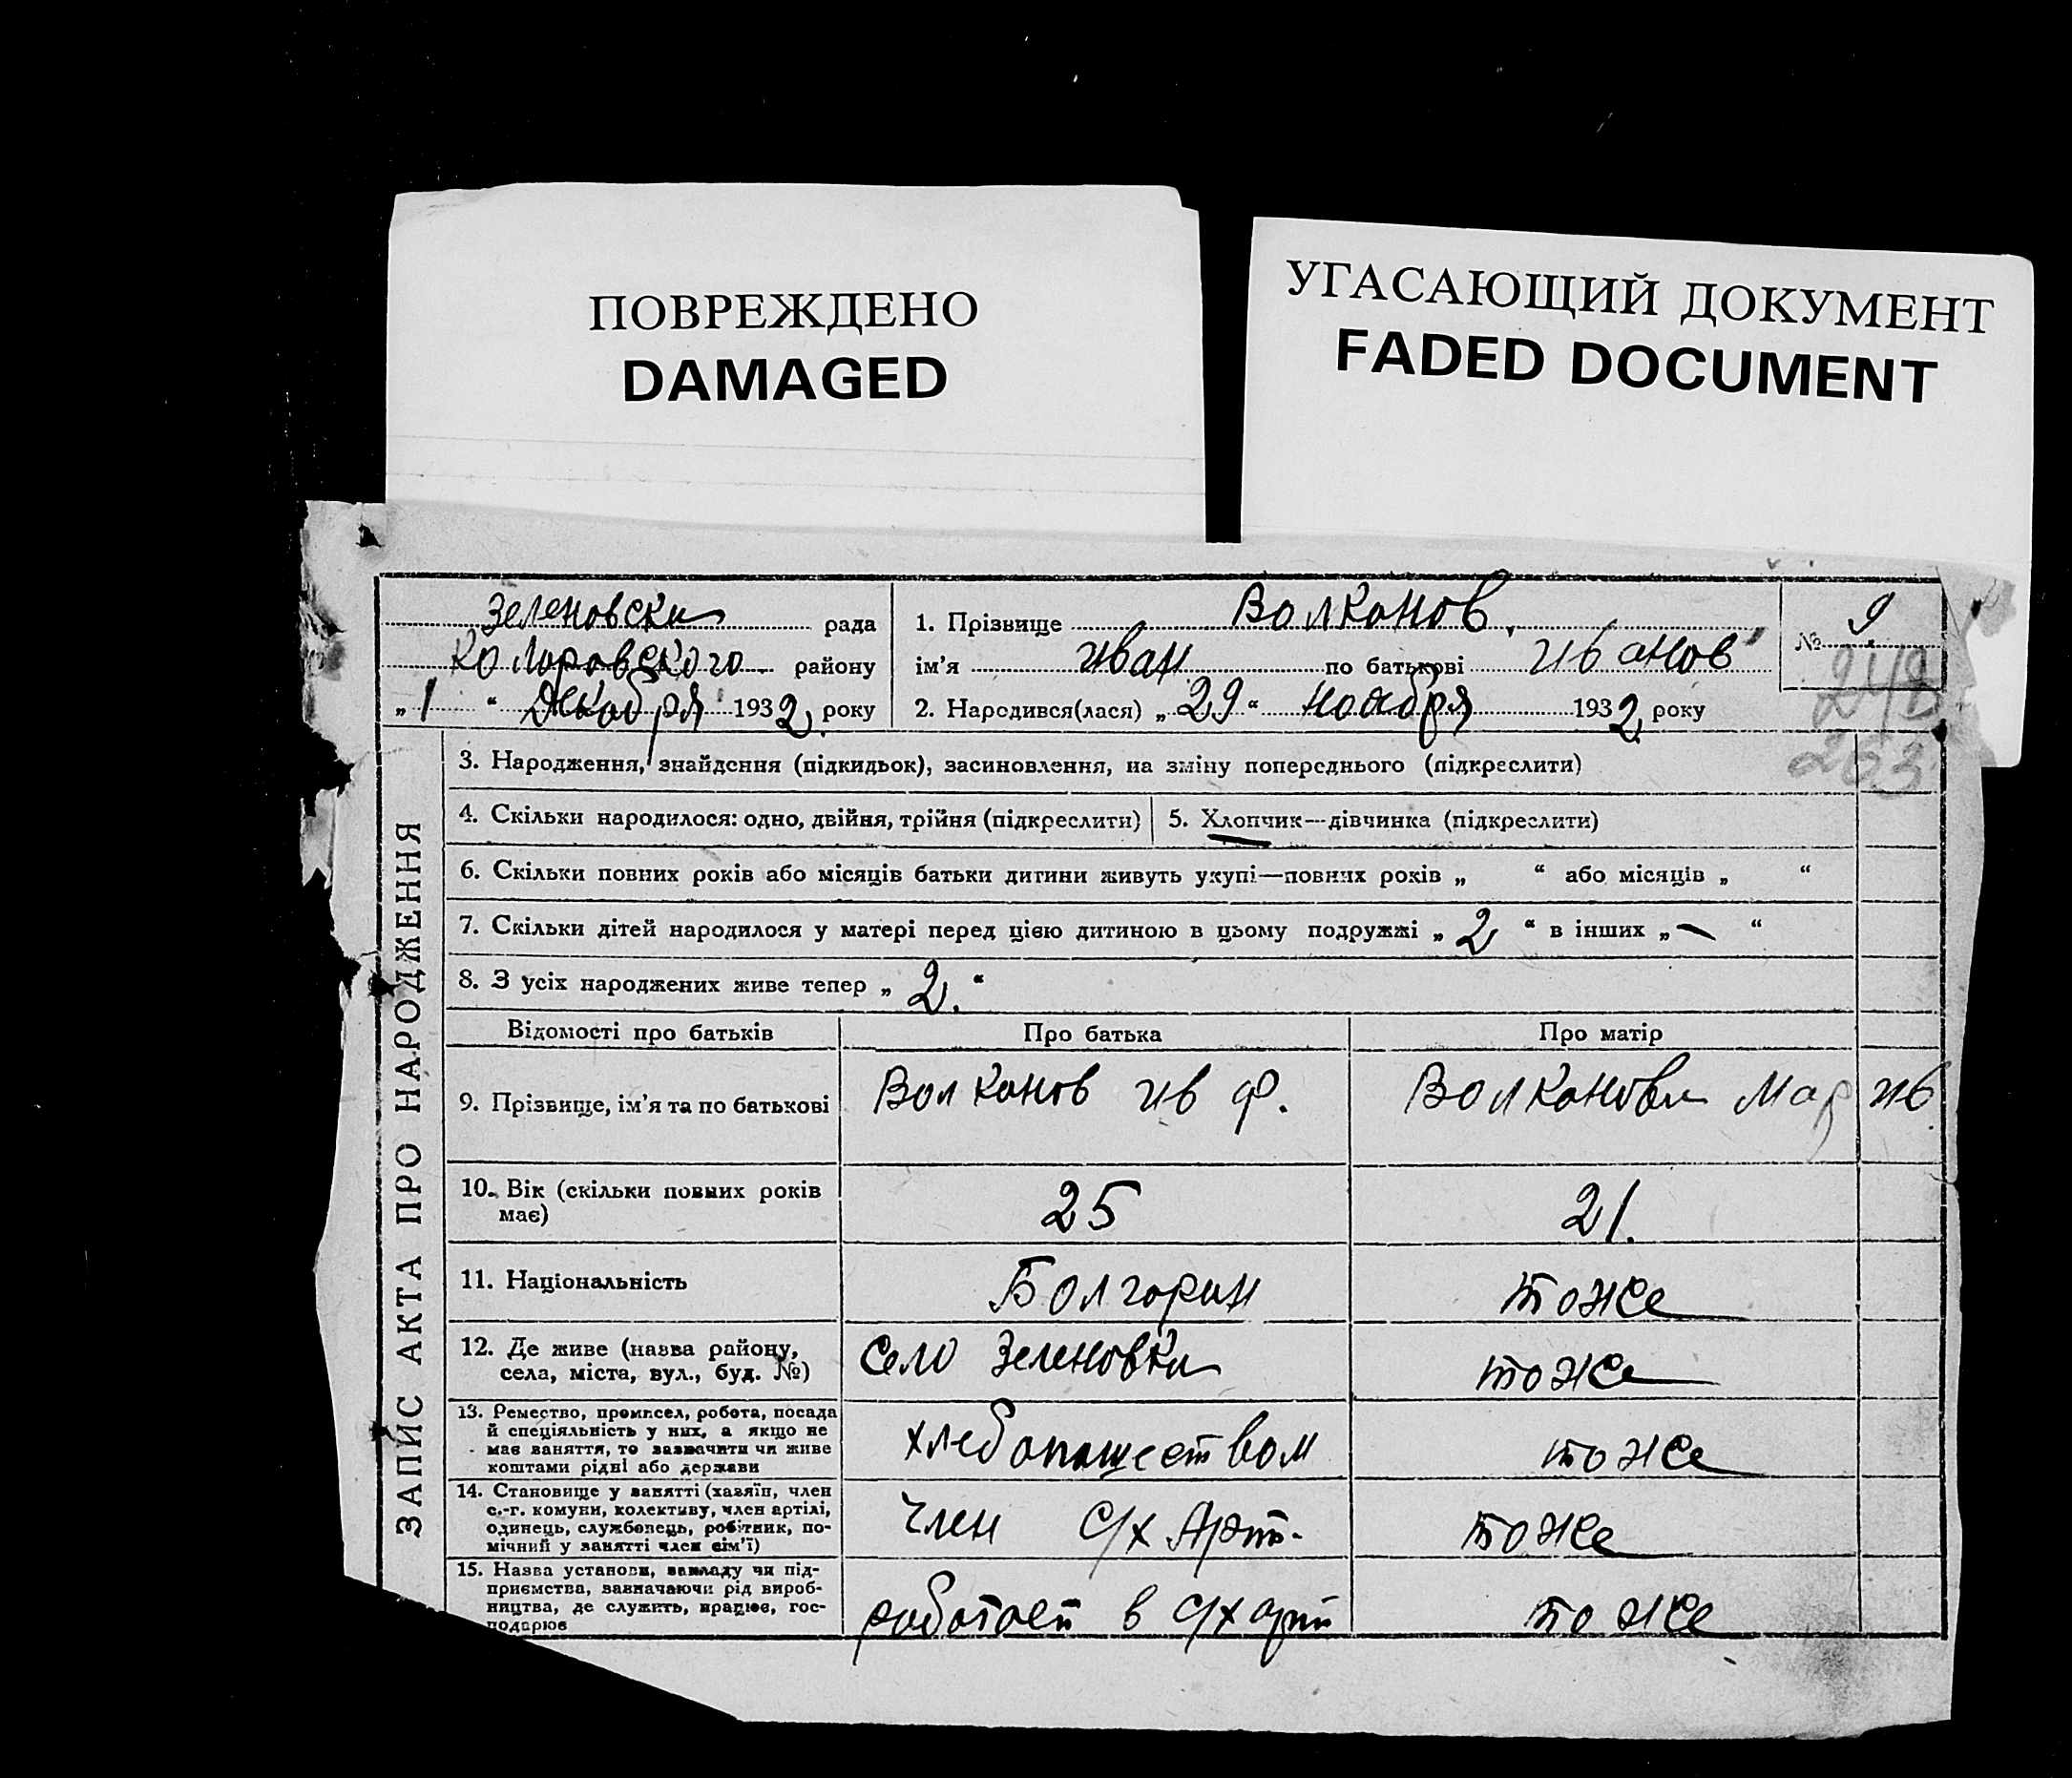 ПОВРЕЖДЕНО
DAMAGED
УГАСАЮЩИЙ ДОКУМЕНТ
FADED DOCUMENT
ЗАПИС АКТА ПРО НАРОДЖЕННЯ
Зеленовски рада
Коларовского району
„1“ Декабря 1932 року
1. Прізвище Волканов
ім'я Иван по батькові Иванов
2. Народився(лася) „29“ ноября 1932 року
№ 9
248
263
3. Народження, знайдення (підкидьок), засиновлення, на зміну попереднього (підкреслити)
4. Скільки народилося: одно, двійня, трійня (підкреслити)
5. Хлопчик—дівчинка (підкреслити)
6. Скільки повних років або місяців батьки дитини живуть укупі—повних років „ “ або місяців „ “
7. Скільки дітей народилося у матері перед цією дитиною в цьому подружжі „2“ в інших „—“
8. З усіх народжених живе тепер „2.“
Відомості про батьків Про батька Про матір
9. Прізвище, ім'я та по батькові Волканов Ив Ф. Волканова Мар Ив
10. Вік (скільки повних років
має) 25 21.
11. Національність Болгорин тоже
12. Де живе (назва району,
села, міста, вул., буд. №) Село Зеленовка тоже
13. Ремество, промисел, робота, посада
й спеціяльність у них, а якщо не
має заняття, то зазначити чи живе
коштами рідні або держави хлебопашеством тоже
14. Становище у занятті (хазяїн, член
с.-г. комуни, колективу, член артілі,
одинець, службовець, робітник, по-
мічний у занятті член сім'ї) член С/х Арт. тоже
15. Назва установи, закладу чи під-
приємства, зазначаючи рід вироб-
ництва, де служить, працює, гос-
подарює работает в С/х арт тоже